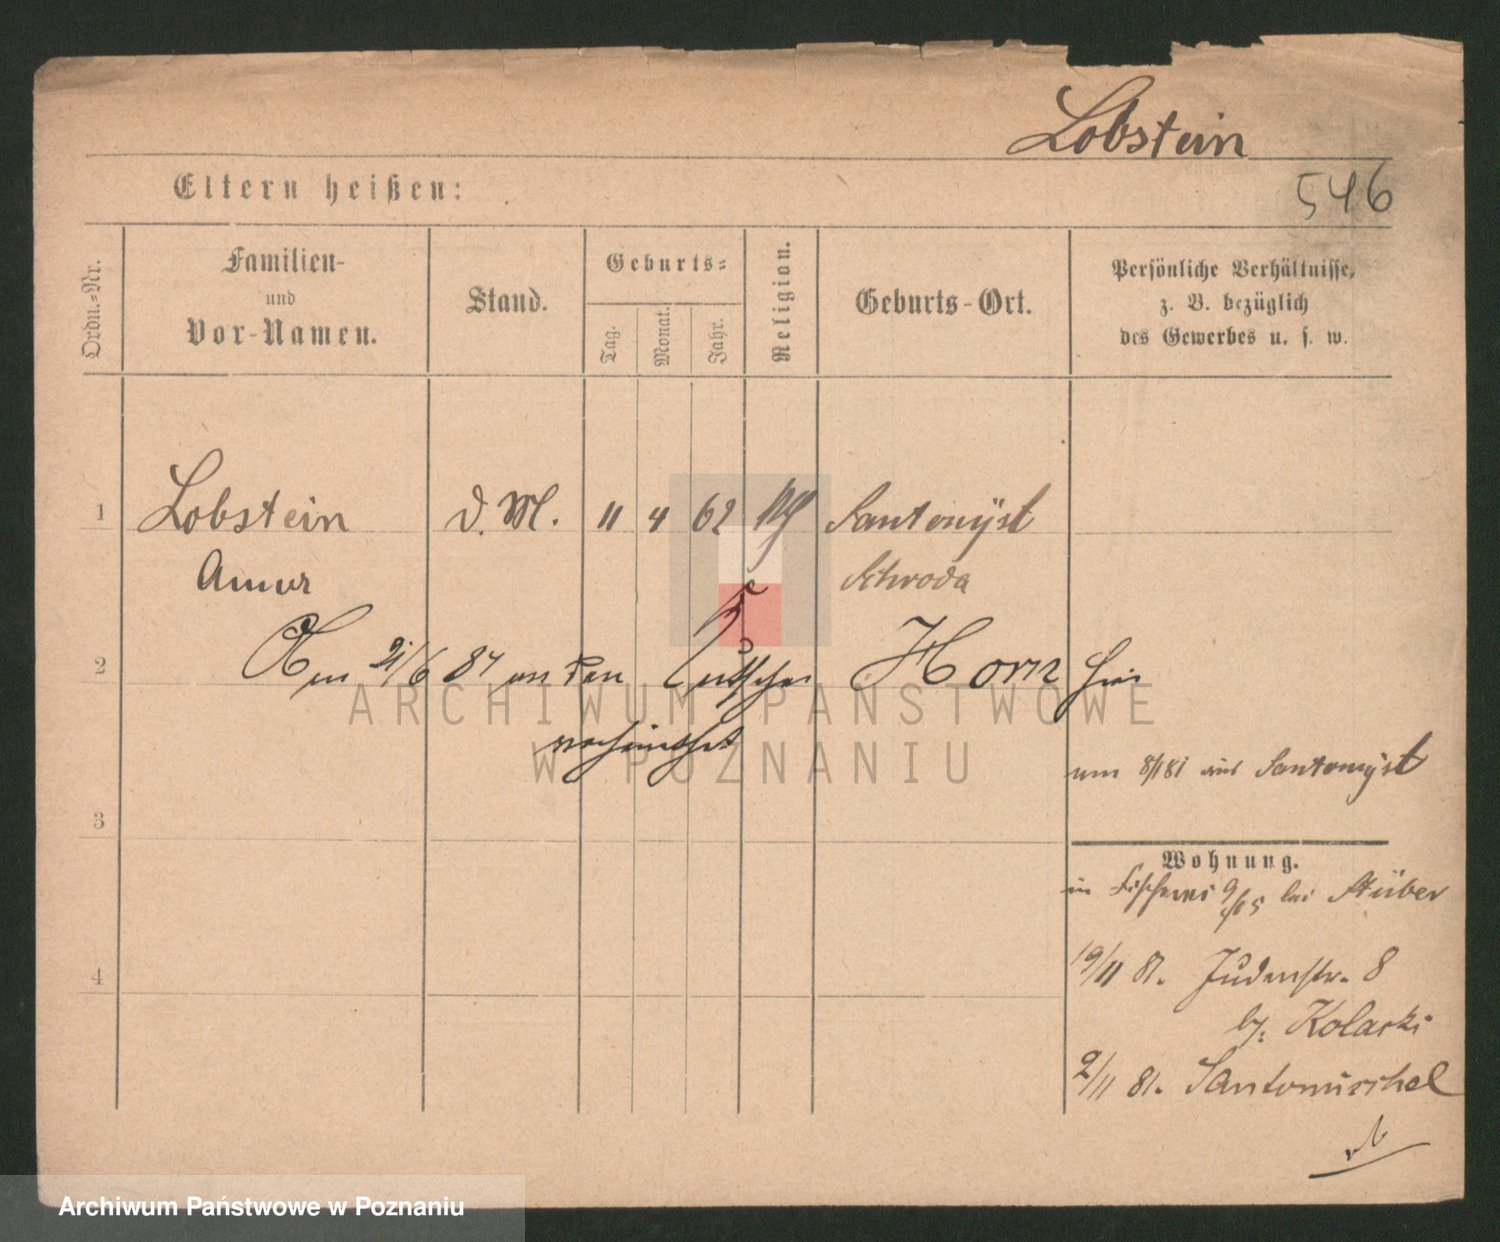 Lobstein
546
Eltern heißen:
Ordn.=Nr.
Familien-
und
Vor-Namen.
Stand.
Geburts=
Tag.
Monat.
Jahr.
Religion.
Geburts-Ort.
Persönliche Verhältnisse,
z. B. bezüglich
des Gewerbes u. s. w.
1
Lobstein
D. M.
11
4
62
Santomysl
Schroda
2
Am 21/6 87 an den Kutscher Horn hier
verheirathet
ARCHIWUM PAŃSTWOWE
W POZNANIU
3
um 8/1 81 aus Santomysl
Wohnung.
in Fischerei bei Stüber
4
19/11 81. Judenstr. 8
by. Kolaski
2/11 81. Santomischel
Archiwum Państwowe w Poznaniu